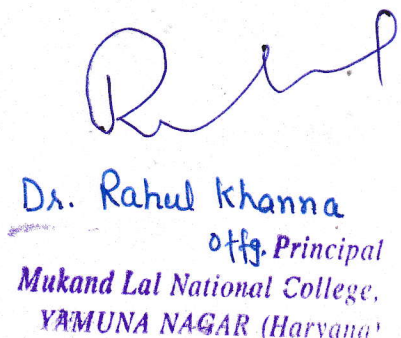 Rahul
Dr. Rahul Khanna
Offg. Principal
Mukand Lal National College,
YAMUNA NAGAR (Haryana)